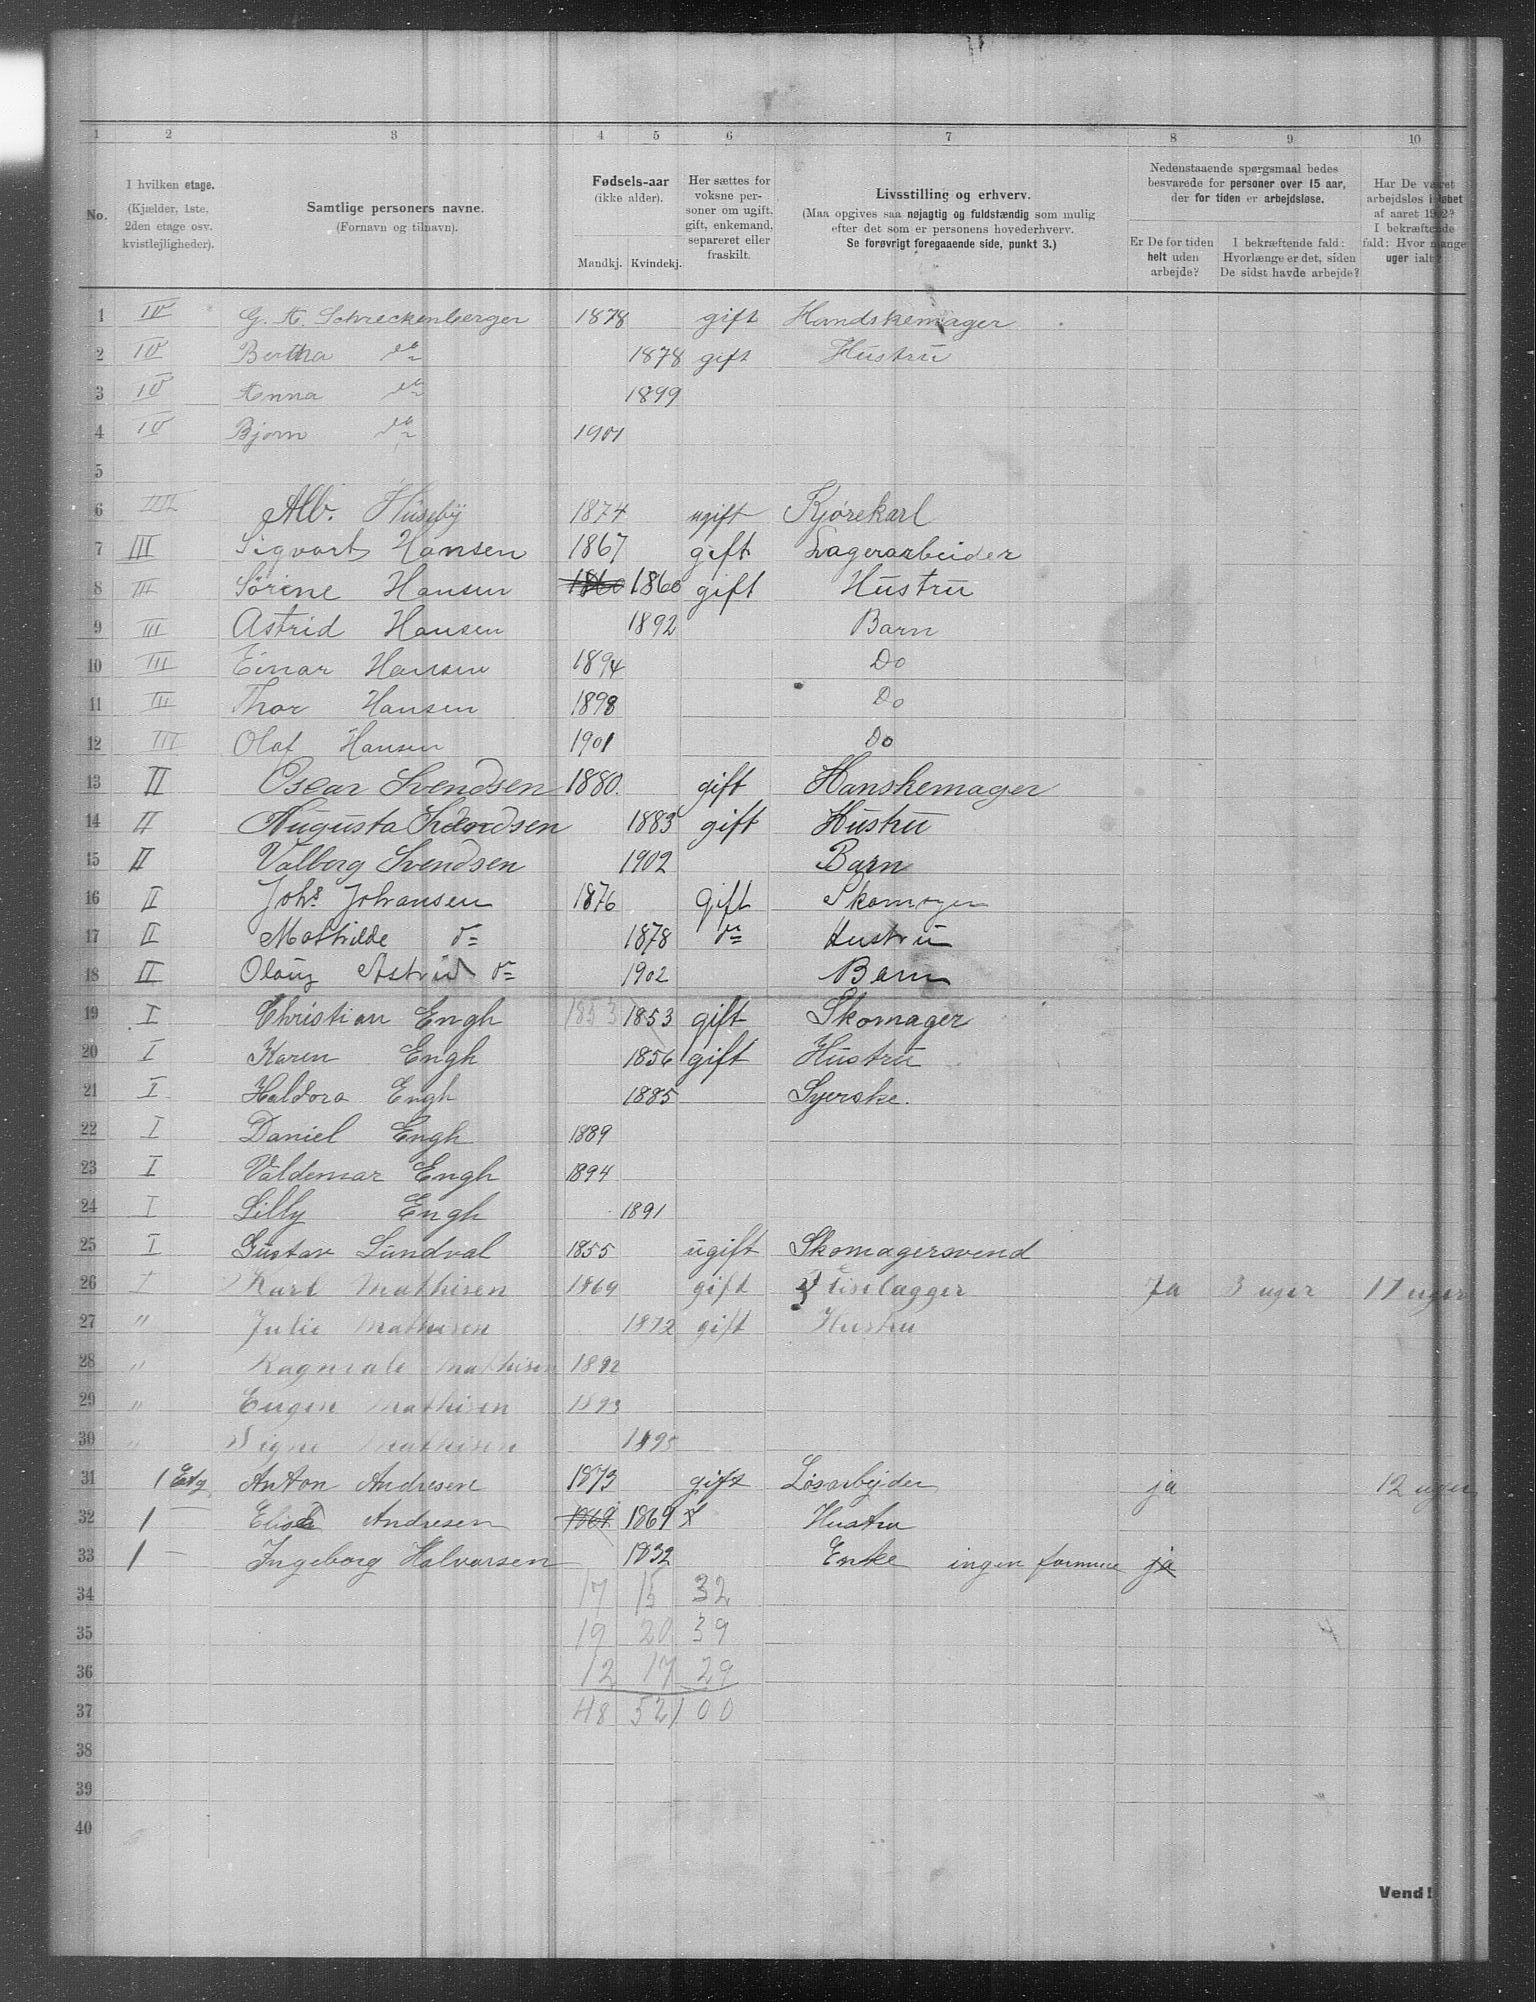 1 2 3 4 5 6 7 8 9 10
No.
I hvilken etage. (Kjælder, 1ste, 2den etage osv. kvistlejligheder).
Samtlige personers navne. (Fornavn og tilnavn).
Fødsels-aar (ikke alder). Mandkj. Kvindekj.
Her sættes for voksne personer om ugift, gift, enkemand, separeret eller fraskilt.
Livsstilling og erhverv. (Maa opgives saa nøjagtig og fuldstændig som mulig efter det som er personens hovederhverv. Se forøvrigt foregaaende side, punkt 3.)
Nedenstaaende spørgsmaal bedes besvarede for personer over 15 aar, der for tiden er arbejdsløse.
Er De for tiden helt uden arbejde?
I bekræftende fald: Hvorlænge er det, siden De sidst havde arbejde?
Har De været arbejdsløs i løbet af aaret 1902? I bekræftende fald: Hvor mange uger ialt?
1 IV G. A. Schreckenberger 1878 gift Handskemager
2 IV Bertha do 1878 gift Hustru
3 IV Anna do 1899
4 IV Bjørn do 1901
5
6 III Alb. Huseby 1874 ugift Kjørekarl
7 III Sigvart Hansen 1867 gift Lagerarbeider
8 III Sørine Hansen 1860 1860 gift Hustru
9 III Astrid Hansen 1892 Barn
10 III Einar Hansen 1894 Do
11 III Thor Hansen 1898 Do
12 III Olaf Hansen 1901 Do
13 II Oscar Svendsen 1880. gift Hanskemager
14 II Augusta Svendsen 1883 gift Hustru
15 II Valborg Svendsen 1902 Barn
16 II Johs. Johansen 1876 gift Skomager
17 II Mathilde do 1878 do Hustru
18 II Olaug Astrid do 1902 Barn
19 I Christian Engh 1853 1853 gift Skomager
20 I Karen Engh 1856 gift Hustru
21 I Haldora Engh 1885 Syerske.
22 I Daniel Engh 1889
23 I Valdemar Engh 1894
24 I Lilly Engh 1891
25 I Gustav Lundval 1855 ugift Skomagersvend
26 I Karl Mathisen 1869 gift Fliselægger Ja 3 uger 11 uger
27 " Julie Mathisen 1872 gift Hustru
28 " Ragnvald Mathisen 1892
29 " Eugen Mathisen 1893
30 " Signe Mathisen 1895
31 1 Etg Anton Andresen 1873 gift Løsarbejder ja 12 uger
32 1 Elise Andresen 1869 1869 Hustru
33 1 Ingeborg Halvorsen 1832 Enke ingen formue ja
34 17 15 32
35 19 20 39
36 12 17 29
37 48 52 100
38
39
40
Vend!